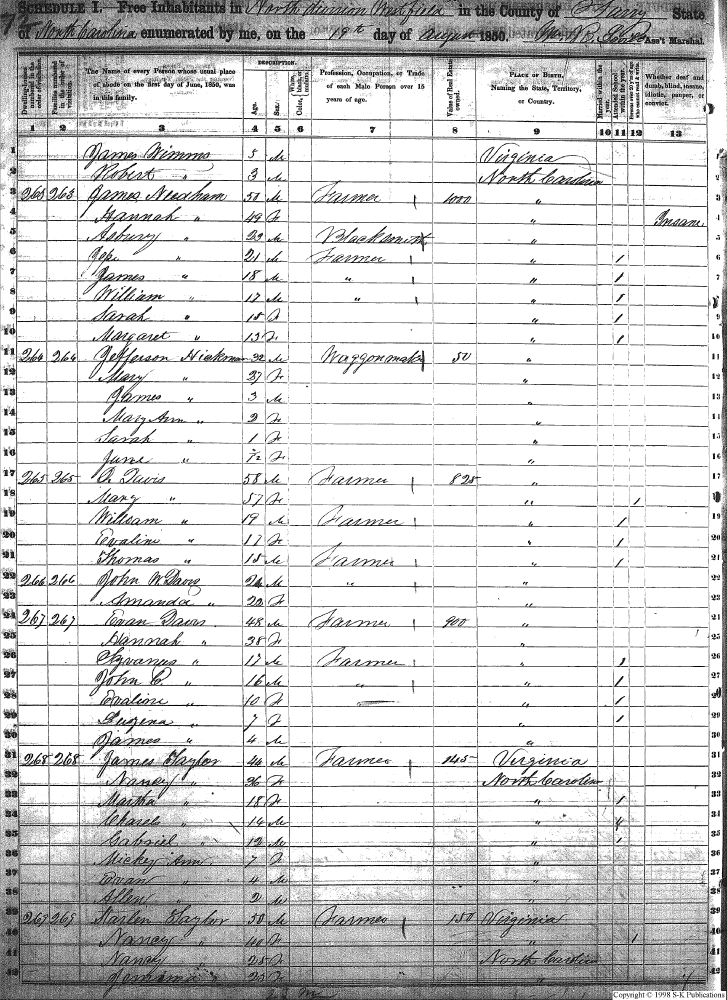 SCHEDULE I. Free Inhabitants in North division Westfield in the County of Surry State
of North Carolina enumerated by me, on the 19th day of August 1850. Ass't Marshal.
DESCRIPTION
The Name of every Person whose usual place of abode on the first day of June, 1850, was in this family.
Age.
Sex.
Color, White, black, or mulatto.
Profession, Occupation, or Trade of each Male Person over 15 years of age.
Value of Real Estate owned.
PLACE OF BIRTH, Naming the State, Territory, or Country.
Married within the year.
Attended School within the year.
Whether deaf and dumb, blind, insane, idiotic, pauper, or convict.
1 2 3 4 5 6 7 8 9 10 11 12 13
1 James Wimms 5 M Virginia
2 Robert " 3 M North Carolina
3 263 263 James Needham 50 M Farmer 1000 "
4 Hannah " 49 F " Insane
5 Asbury " 22 M Blacksmith "
6 " 21 M Farmer " /
7 James " 18 M " " /
8 William " 17 M " " /
9 Sarah " 15 F " /
10 Margaret " 13 F " /
11 264 264 Jefferson Hickman 32 M Waggonmaker 50 "
12 Mary " 27 F "
13 James " 3 M "
14 Mary Ann " 2 F "
15 Sarah " 1 F "
16 Jane " F "
17 265 265 Davis 58 M Farmer 825 "
18 Mary " 57 F " /
19 William " 19 M Farmer " /
20 Evaline " 17 F " /
21 Thomas " 15 M Farmer " /
22 266 266 John W Davis 24 M " "
23 Amanda " 22 F "
24 267 267 Evan Davis 48 M Farmer 900 "
25 Hannah " 38 F "
26 Sylvanus " 17 M Farmer " /
27 John C " 16 M " " /
28 Evaline " 10 F " /
29 Luzena " 7 F " /
30 James " 4 M "
31 268 268 James Taylor 44 M Farmer 145 Virginia
32 Nancy " 36 F North Carolina
33 Martha " 18 F " /
34 Charels " 14 M " /
35 Gabriel " 12 M " /
36 Mickey Ann 7 F "
37 Evan " 4 M "
38 Allen " 2 M "
39 269 269 Harlen Taylor 50 M Farmer 150 Virginia
40 Nancy " F " /
41 Nancy " 25 F North Carolina
42 Jemima " 23 F "
Copyright © 1998 S-K Publications